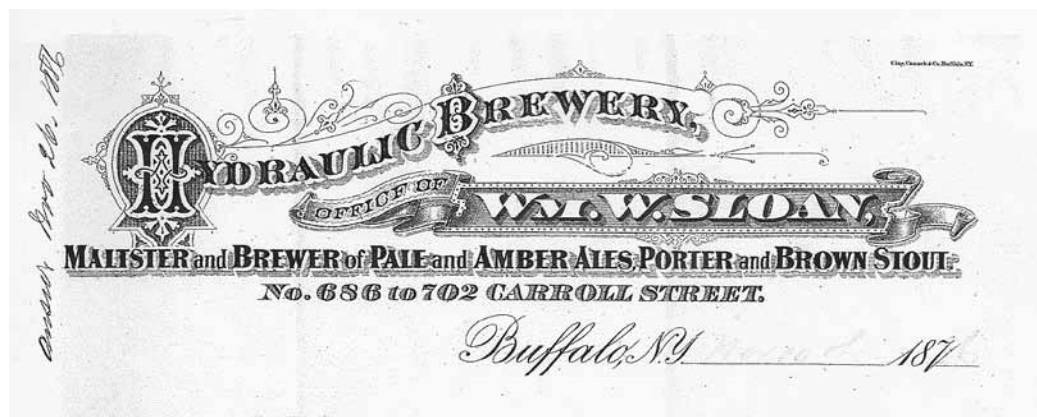 Clay, Cosack & Co. Buffalo, N.Y.
HYDRAULIC BREWERY,
OFFICE OF
WM. W. SLOAN,
MALTSTER and BREWER of PALE and AMBER ALES, PORTER and BROWN STOUT.
No. 686 to 702 CARROLL STREET.
Buffalo, N.Y. 1876
Nov 26, 1876